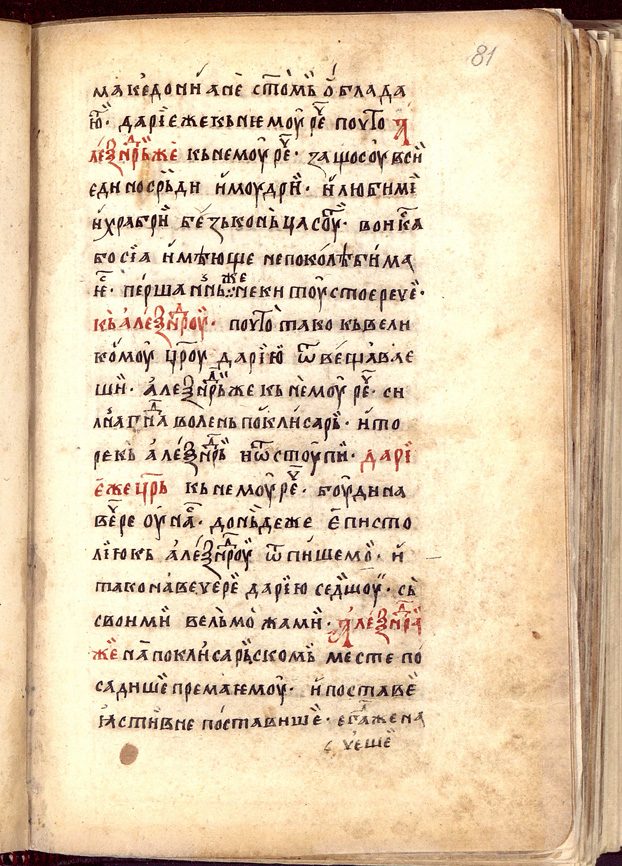 81
македонїи а не стомь ѡблада
ю҃. дарїе же кь нѥмоу реⷱ҇ поуто а
леѯ҃нⷣрь же кь немоу реⷱ҇. ꙁа що соу вси
едно срьдни и моудри. и любими
и храбри беꙁь конца соуⷮ. вои н҃ша
бо сїа имѣюще непоколѣбима
ѥ҃. перша нинь же неки тоу стое реуе.
кь алеѯ҃нⷣроу. поуто тако кь вели
комоу цр҃оу дарїю ѿвещавле
ши. алеѯ҃нⷣрь же кь немоу реⷱ҇. си
лна гпⷣна волень поклисарь. и то
рекь алеѯ҃нⷣрь и ѿстоупи. дарї
е же цр҃ь кь немоу реⷱ҇. боуди на
вере оу нⷭ҇а. доньдеже еписто
лїю кь алеѯ҃нⷣроу ѿпишемо. и
тако на веуере дарїю седшоу. сь
своими вельможами. алеѯ҃нⷣра
же на поклисарьскомь месте по
садише према ѥмоу. и поставе
ꙗстивне поставише. егⷣа же на
уеше